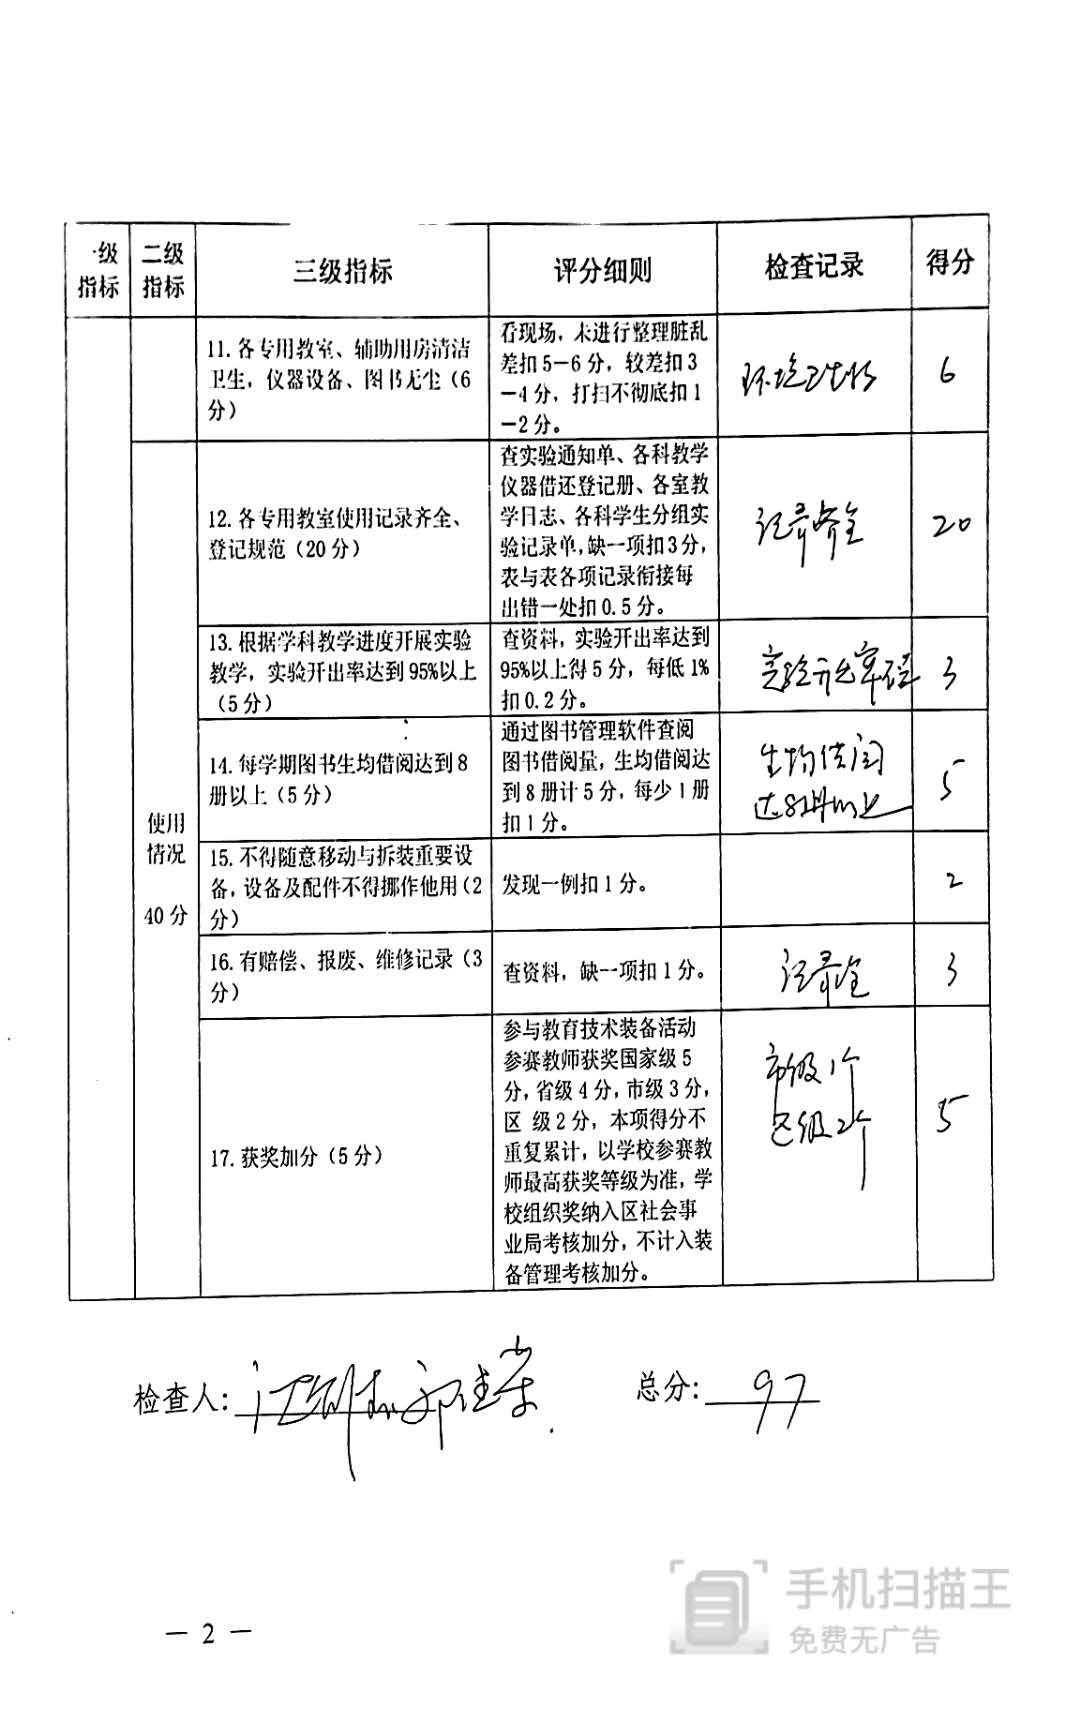 ·级
指标
二级
指标
三级指标
评分细则
检查记录
得分
11.各专用教室、辅助用房清洁
卫生，仪器设备、图书无尘（6
分）
看现场，未进行整理脏乱
差扣5－6分，较差扣3
－4分，打扫不彻底扣1
－2分。
环境卫生好
6
使用
情况
40分
12.各专用教室使用记录齐全、
登记规范（20分）
查实验通知单、各科教学
仪器借还登记册、各室教
学日志、各科学生分组实
验记录单，缺一项扣3分，
表与表各项记录衔接每
出错一处扣0.5分。
记录齐全
20
13.根据学科教学进度开展实验
教学，实验开出率达到95%以上
（5分）
查资料，实验开出率达到
95%以上得5分，每低1%
扣0.2分。
实验开出率
3
14.每学期图书生均借阅达到8
册以上（5分）
通过图书管理软件查阅
图书借阅量，生均借阅达
到8册计5分，每少1册
扣1分。
生均借阅
达8册以上
5
15.不得随意移动与拆装重要设
备，设备及配件不得挪作他用（2
分）
发现一例扣1分。
2
16.有赔偿、报废、维修记录（3
分）
查资料，缺一项扣1分。
记录全
3
17.获奖加分（5分）
参与教育技术装备活动
参赛教师获奖国家级5
分，省级4分，市级3分，
区 级2分，本项得分不
重复累计，以学校参赛教
师最高获奖等级为准，学
校组织奖纳入区社会事
业局考核加分，不计入装
备管理考核加分。
市级1个
区级2个
5
检查人：
总分：97
— 2 —
手机扫描王
免费无广告